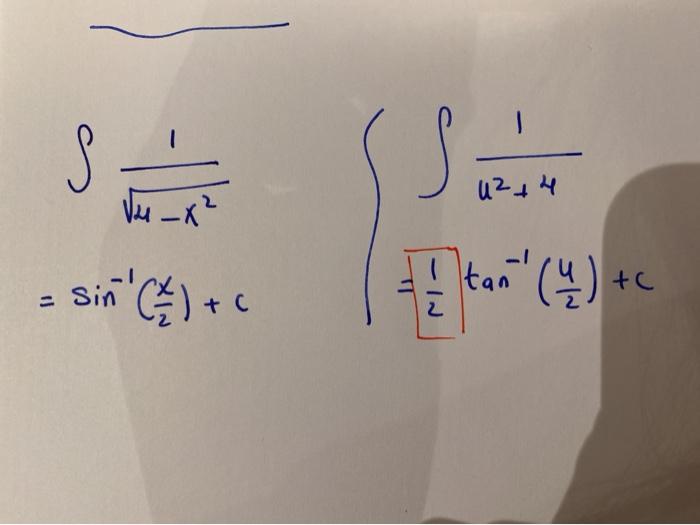 ∫ 1/√4-x²
= sin⁻¹(x/2) + c
∫ 1/u²+4
= 1/2 tan⁻¹(u/2) + c